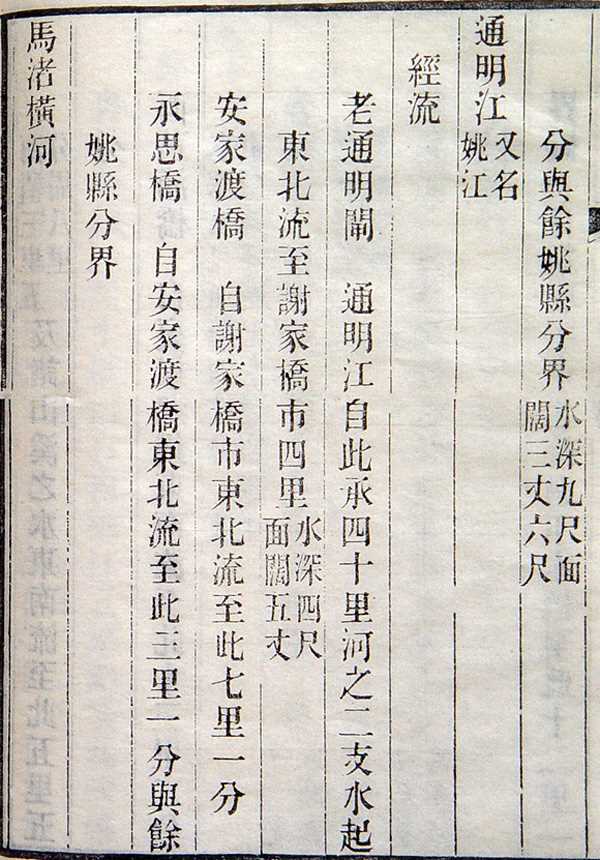 分與餘姚縣分界水深九尺面闊三丈六尺
通明江又名姚江
經流
老通明閘 通明江自此承四十里河之二支水起
東北流至謝家橋市四里水深四尺面闊五丈
安家渡橋 自謝家橋市東北流至此七里一分
永思橋 自安家渡橋東北流至此三里一分與餘
姚縣分界
馬渚橫河